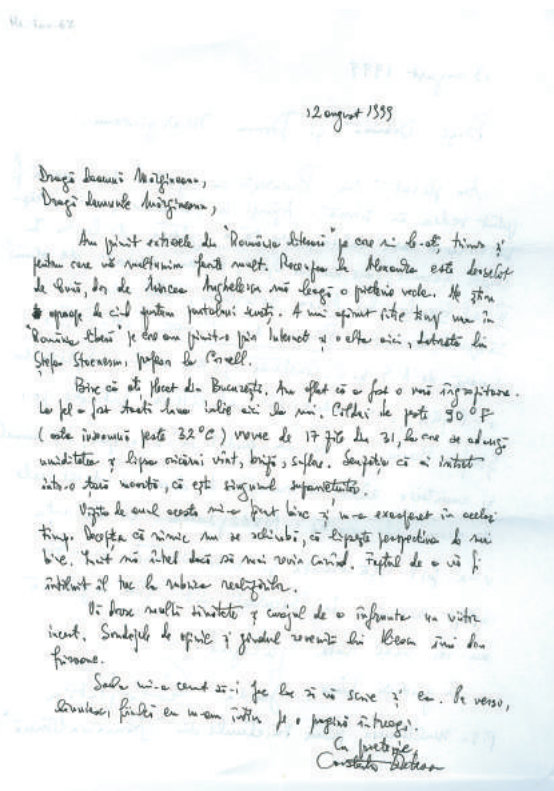 12 august 1999
Dragă Doamnă Mărgineanu,
Dragă Domnule Mărgineanu,
Am primit extrasele din "România literară" pe care ni le-ați trimis și
pentru care vă mulțumim foarte mult. Alexandra este deosebit
de bună, dar de Mircea Anghelescu mă leagă o prietenie veche. Ne știm
aproape de cînd purtam pantaloni scurți. A mai apărut între timp una în
"România liberă" pe care am primit-o prin Internet și o alta aici, datorată lui
Ștefan Stoenescu, profesor la Cornell.
Bine că ați plecat din București. Am aflat că a fost o vară îngrozitoare.
La fel a fost toată luna iulie aici la noi. Călduri de peste 90°F
(asta înseamnă peste 32°C) vreme de 17 zile din 31, la care se adaugă
umiditatea și lipsa oricărui vînt, briză, suflare. Senzația că ai intrat
într-o țară moartă, că ești singurul supraviețuitor.
Vizita de anul acesta mi-a făcut bine și m-a exasperat în același
timp. Decepția că nimic nu se schimbă, că lipsește perspectiva de mai
bine. Încît mă întreb dacă să mai revin curînd. Faptul de a vă fi
întîlnit îl trec la rubrica realizărilor.
Vă doresc multă sănătate și curajul de a înfrunta un viitor
incert. Sondajele de opinie și gîndul revenirii lui Iliescu îmi dau
frisoane.
Sanda mi-a cerut să-i fac loc să vă scrie și ea. Pe verso,
fiindcă eu m-am întins pe o pagină întreagă.
Cu prietenie,